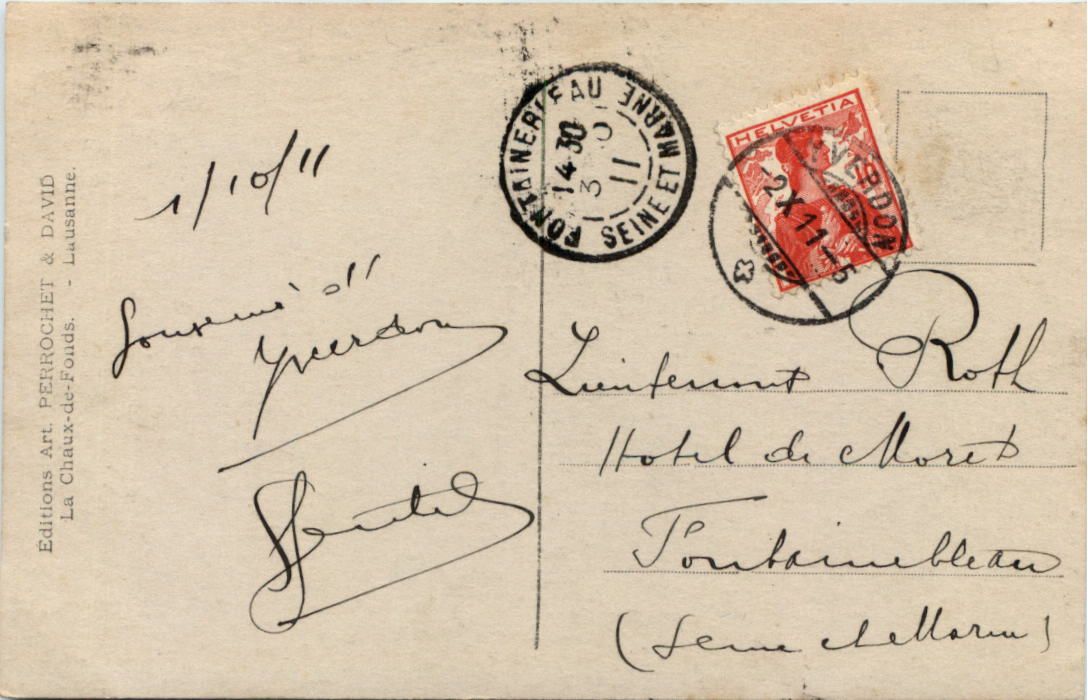 Editions Art. PERROCHET & DAVID
La Chaux-de-Fonds. - Lausanne.
1/10/11
Souvenir d'
Yverdon
FONTAINEBLEAU
14-30
3 -10
11
SEINE ET MARNE
HELVETIA
YVERDON
-2.X.11.-5
Lieutenant Roth
Hotel de Moret
Fontainebleau
(Seine et Marne)